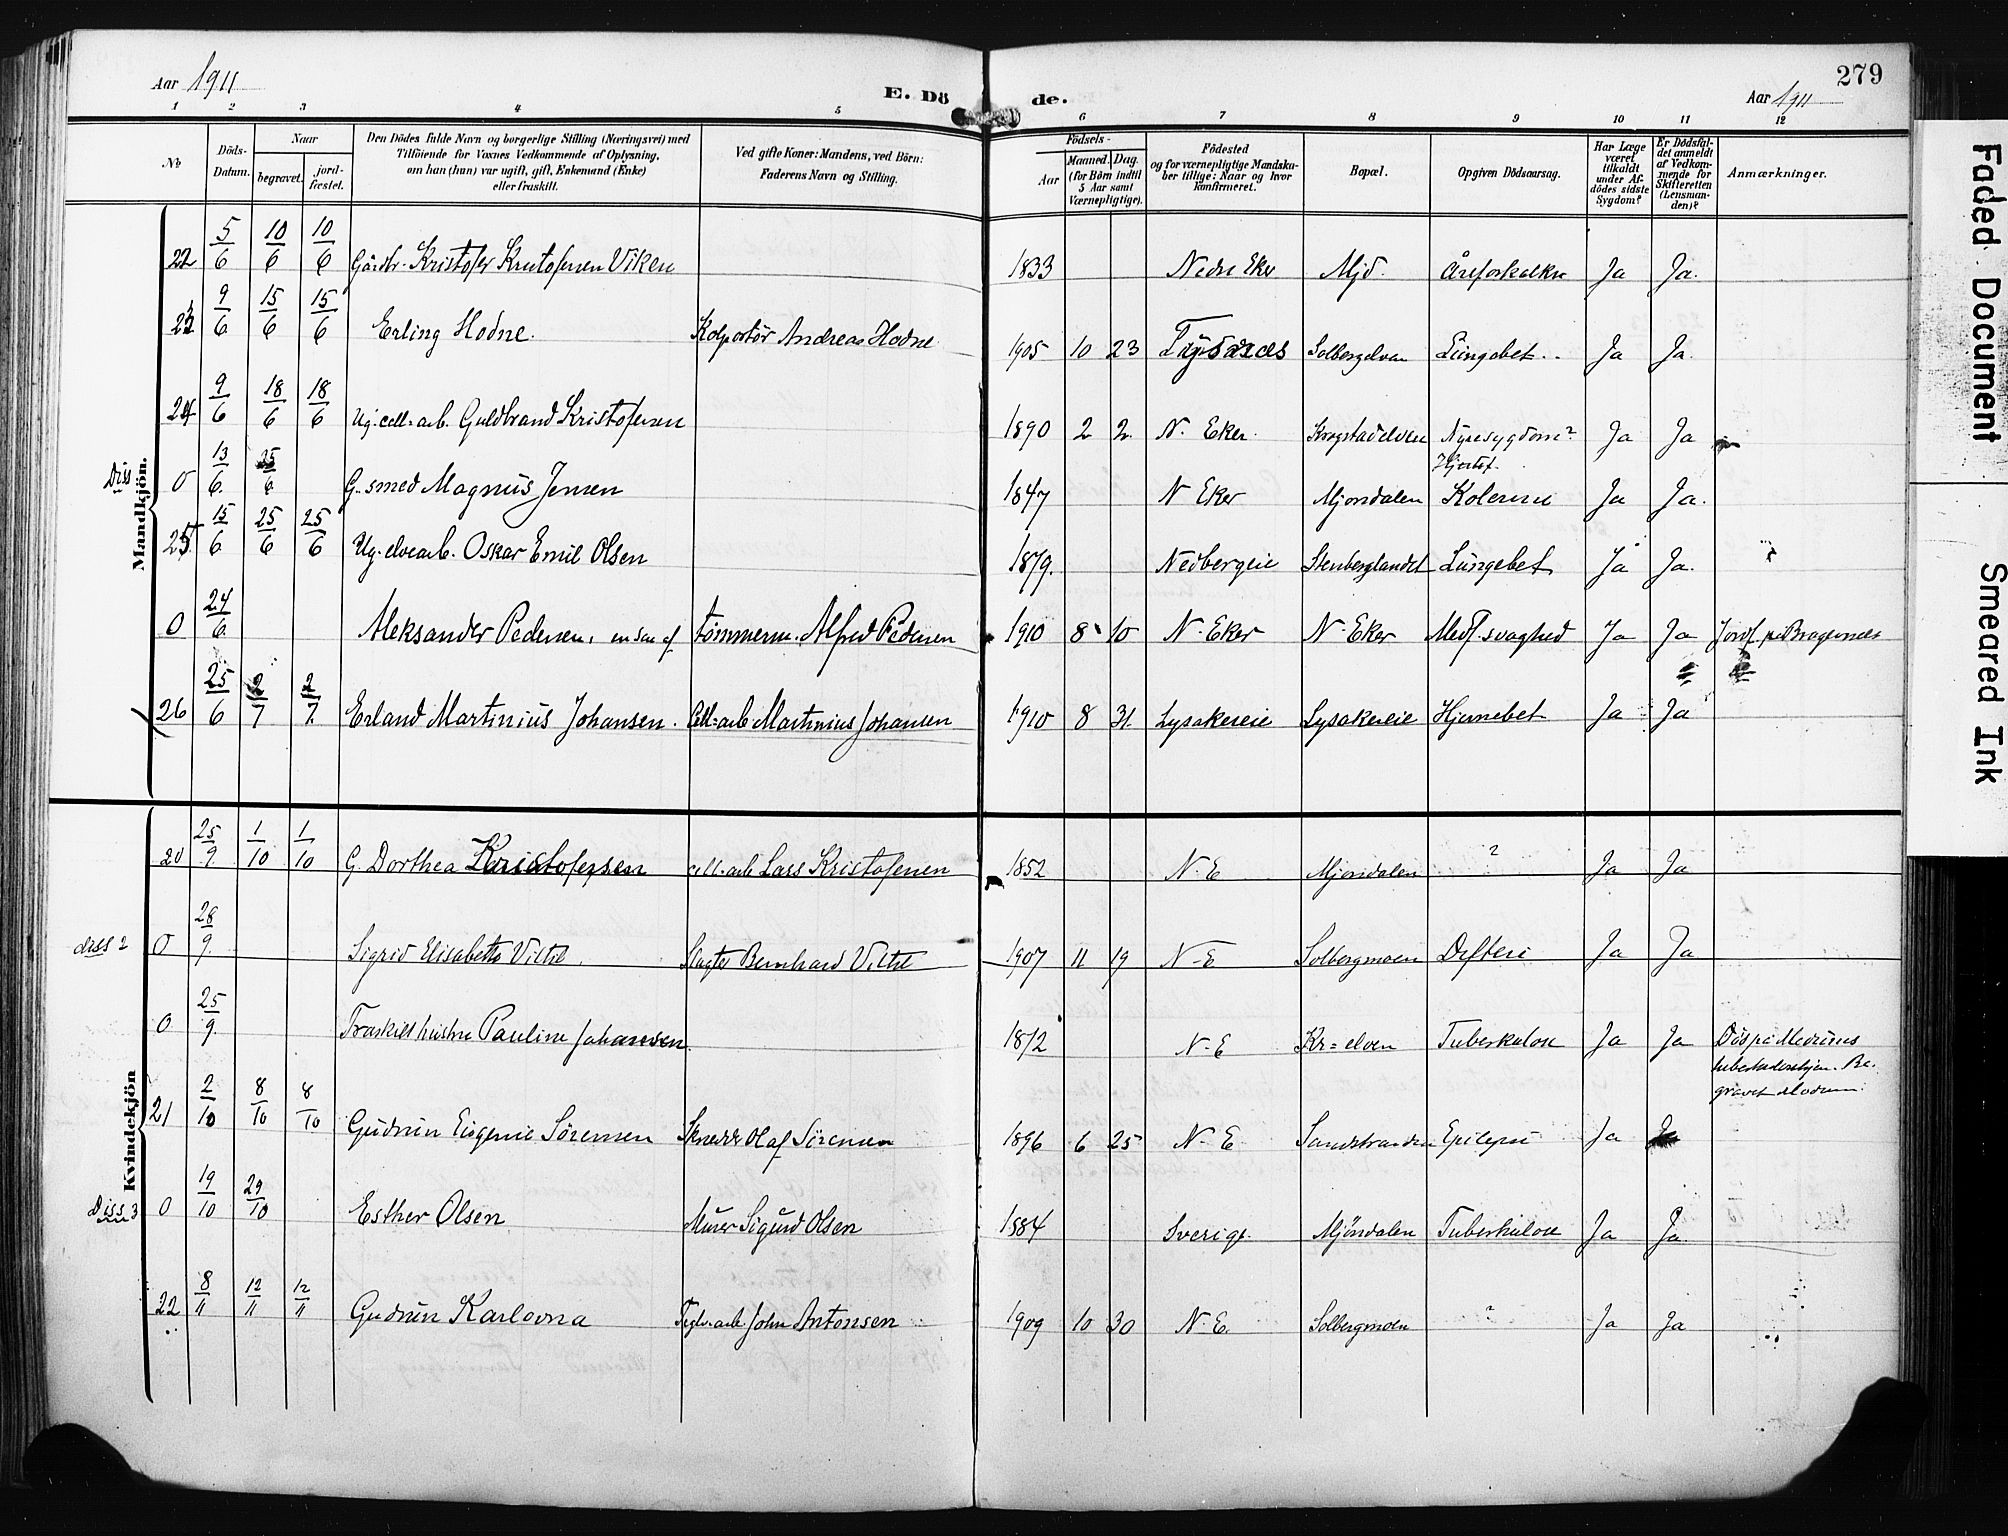 Aar 1911
E. Döde.
Aar 1911
279
1 2 3 4 5 6 7 8 9 10 11 12
No
Döds-Datum.
Naar
begravet.
jord-fæstet.
Den Dödes fulde Navn og borgerlige Stilling (Næringsvei) med
Tilföiende for Voxnes Vedkommende af Oplysning,
om han (hun) var ugift, gift, Enkemand (Enke)
eller fraskilt.
Ved gifte Koner: Mandens, ved Börn:
Faderens Navn og Stilling.
Födsels-
Aar
Maaned. Dag.
(for Börn indtil
5 Aar samt
Værnepligtige).
Födested
og for værnepligtige Mandska-
ber tillige: Naar og hvor
konfirmeret.
Bopæl.
Opgiven Dödsaarsag.
Har Læge
været
tilkaldt
under Af-
dödes sidste
Sygdom?
Er Dödsfal-
det anmeldt
af Vedkom-
mende for
Skifteretten
(Lensman-
den)?
Anmærkninger.
Mandkjön.
22 5/6 10/6 10/6 Gårdbr. Kristofer Kristofersen Viken 1833 Nedre Eker Mjd. Åreforkalkn Ja Ja.
23 9/6 15/6 15/6 Erling Hodne. Kolportör Andreas Hodne 1905 10 23 Tysnæs Solbergelven Lungebet. Ja Ja.
24 9/6 18/6 18/6 Ug. cell-arb. Guldbrand Kristofersen 1890 2 2 N. Eker. Krogstadelven Nyresygdom? Ja Ja
Diss 0 13/6 25/6 G. smed Magnus Jensen 1847 N Eker Mjöndalen Hjertef. Kolerine Ja Ja.
25 15/6 25/6 25/6 Ug. elvearb. Oskar Emil Olsen 1879. Nedbergeie Stenberglandet Lungebet Ja Ja.
0 24/6 Aleksander Pedersen, en sön af tömmerm. Alfred Pedersen 1910 8 10 N. Eker N. Eker Medf. svaghed Ja Ja Jordf. på Bragernæs
26 25/6 2/7 2/7 Erland Martinius Johansen. Cell-arb Martinius Johansen 1910 8 31. Lysakereie Lysakereie Hjernebet Ja Ja
Kvindekjön
20 25/9 1/10 1/10 G. Dorthea Kristofersen cell.-arb Lars Kristofersen 1852 N. E Mjöndalen ? Ja Ja
diss 2 0 28/9. Sigrid Elisabeth Viltil Slagter Bernhard Viltil 1907 11 19 N-E Solbergmoen Difteri Ja Ja
0 25/9. Fraskilt hustru Pauline Johannesen. 1872 N-E Kr=elven Tuberkulose Ja Ja Död på Modums
tuberkulosehjem. Be-
gravet Modum.
21 2/10 8/10 8/10 Gudrun Eugenie Sörensen Skredder Olaf Sörensen 1896 6 25 N-E Sandstranden Epilepsi Ja Ja
Diss 3 0 19/10 29/10 Esther Olsen Murer Sigurd Olsen 1884 Sverige. Mjöndalen Tuberkulose Ja Ja
22 8/11 12/11 12/11 Gudrun Karlovna Teglv.arb. John Antonsen 1909 10 30 N-E. Solbergmoen ? Ja Ja
Faded Document
Smeared Ink